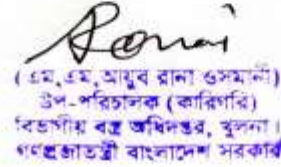 Ronai
( এম, এম, আয়ুব রানা ওসমানী)
উপ-পরিচালক (কারিগরি)
বিভাগীয় বস্ত্র অধিদপ্তর, খুলনা।
গণপ্রজাতন্ত্রী বাংলাদেশ সরকার